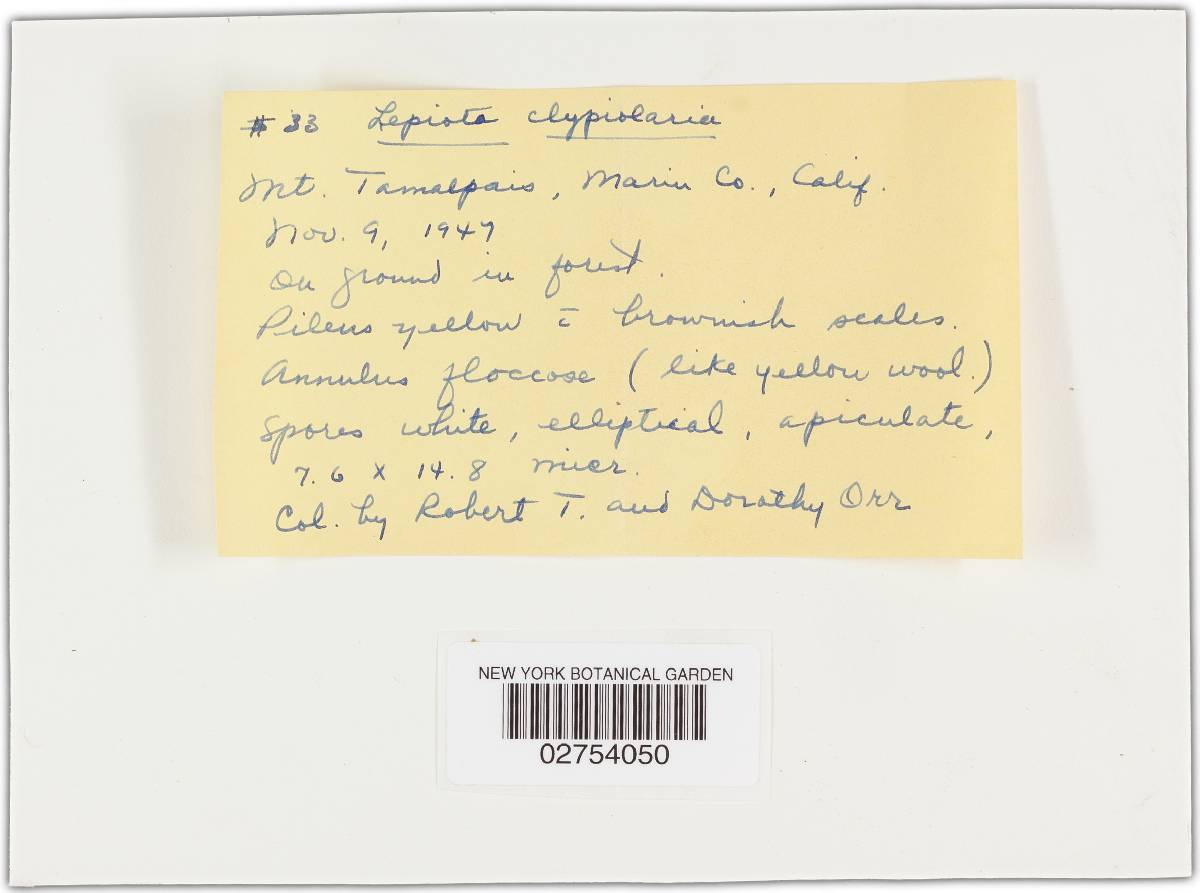 # 33 Lepiota clypiolaria
Mt. Tamalpais, Marin Co., Calif.
Nov. 9, 1947
On ground in forest.
Pileus yellow c̄ brownish scales.
Annulus floccose (like yellow wool.)
Spores white, elliptical, apiculate,
7.6 x 14.8 micr.
Col. by Robert T. and Dorothy Orr
NEW YORK BOTANICAL GARDEN
02754050